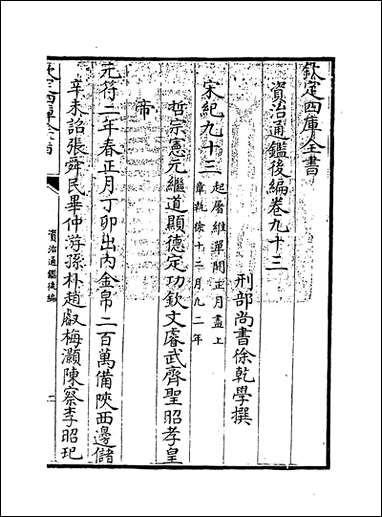 欽定四庫全書
資治通鑑後編卷九十三
刑部尚書徐乾學撰
宋紀九十三 起屠維單閼正月盡上章執徐十二月凡二年
哲宗憲元繼道顯德定功欽文睿武齊聖昭孝皇
帝
元符二年春正月丁卯出內金帛二百萬備陜西邊儲
辛未詔張舜民畢仲游孫朴趙叡梅灝陳察李昭玘
資治通鑑後編